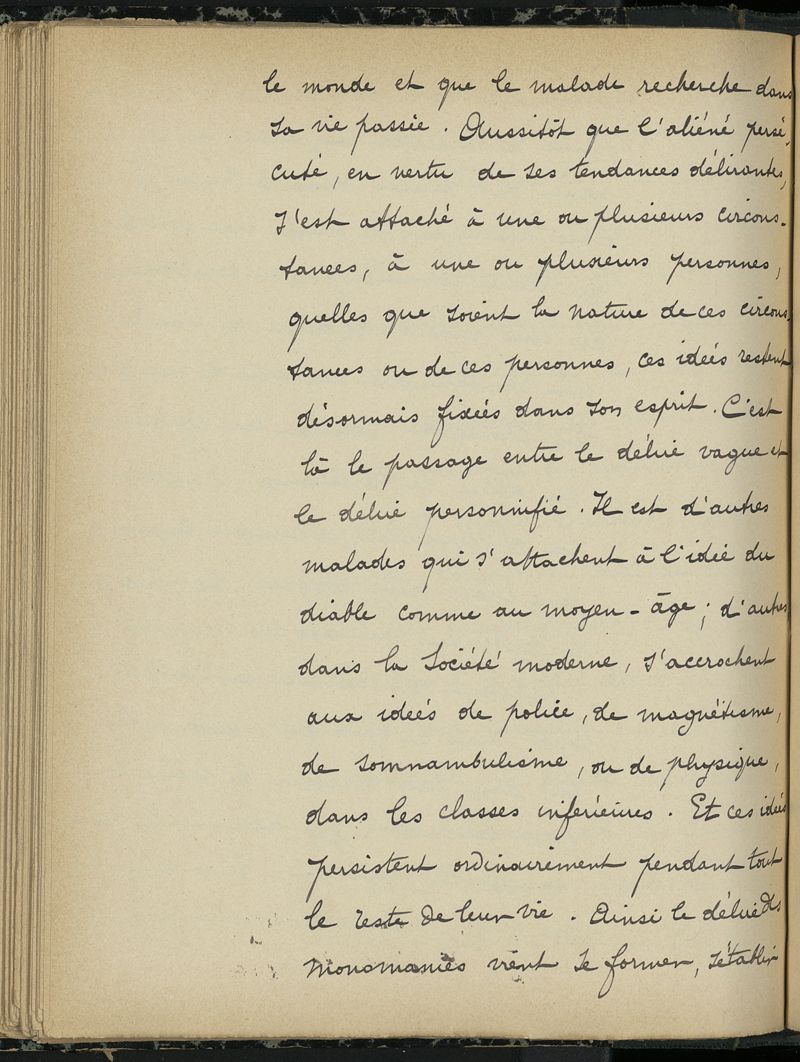 le monde et que le malade recherche dans
sa vie passée. Aussitôt que l'aliéné persé-
cuté, en vertu de ses tendances délirantes,
s'est attaché à une ou plusieurs circons-
tances, à une ou plusieurs personnes,
quelles que soient la nature de ces circons-
tances ou de ces personnes, ces idées restent
désormais fixées dans son esprit. C'est
là le passage entre le délire vague et
le délire personnifié. Il est d'autres
malades qui s'attachent à l'idée du
diable comme au moyen-âge; d'autres
dans la Société moderne, s'accrochent
aux idées de police, de magnétisme,
de somnambulisme, ou de physique,
dans les classes inférieures. Et ces idées
persistent ordinairement pendant tout
le reste de leur vie. Ainsi le délire des
monomanies vient se former, s'établir